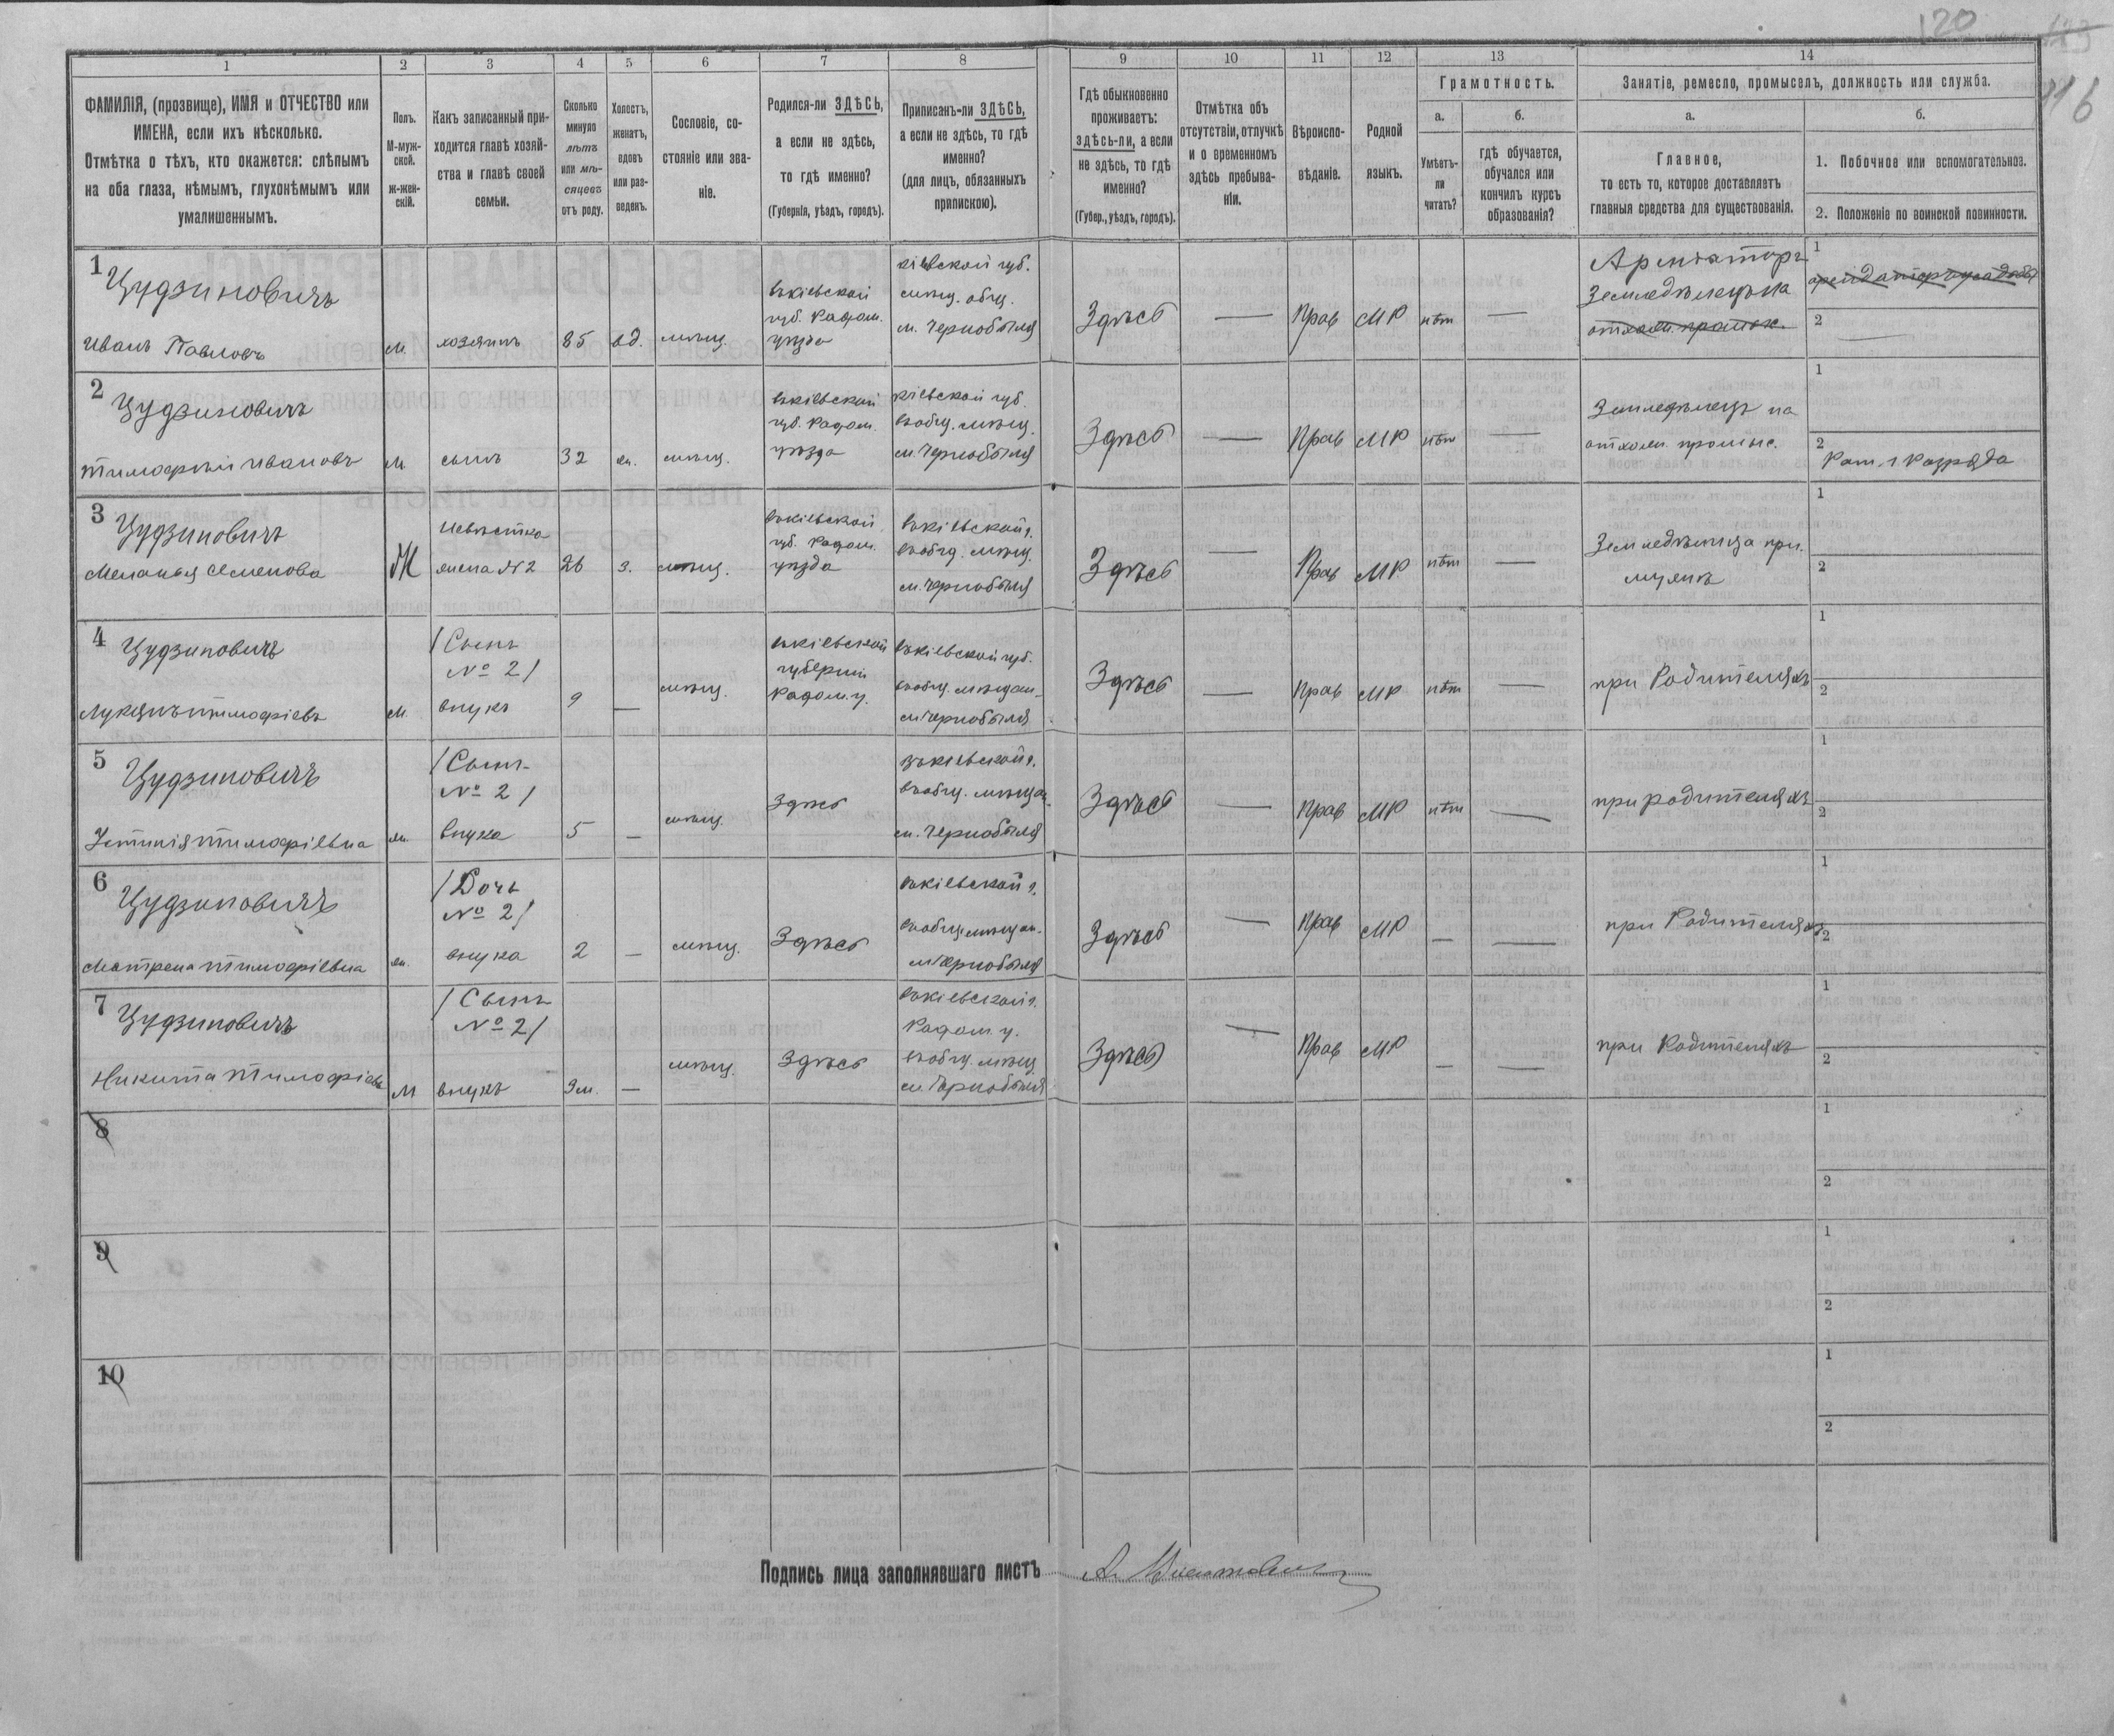 120
116
1 2 3 4 5 6 7 8 9 10 11 12 13 14
ФАМИЛІЯ, (прозвище), ИМЯ и ОТЧЕСТВО или
ИМЕНА, если ихъ нѣсколько.
Отмѣтка о тѣхъ, кто окажется: слѣпымъ
на оба глаза, нѣмымъ, глухонѣмымъ или
умалишеннымъ.
Полъ.
М-муж-
ской.
ж-жен-
скій.
Какъ записанный при-
ходится главѣ хозяй-
ства и главѣ своей
семьи.
Сколько
минуло
лѣтъ
или мѣ-
сяцевъ
отъ роду.
Холостъ,
женатъ,
вдовъ
или раз-
веденъ.
Сословіе, со-
стояніе или зва-
ніе.
Родился-ли ЗДѢСЬ,
а если не здѣсь,
то гдѣ именно?
(Губернія, уѣздъ, городъ).
Приписанъ-ли ЗДѢСЬ,
а если не здѣсь, то гдѣ
именно?
(для лицъ, обязанныхъ
припискою).
Гдѣ обыкновенно
проживаетъ:
здѣсь-ли, а если
не здѣсь, то гдѣ
именно?
(Губер., уѣздъ, городъ).
Отмѣтка объ
отсутствіи, отлучкѣ
и о временномъ
здѣсь пребыва-
ніи.
Вѣроиспо-
вѣданіе.
Родной
языкъ.
Грамотность.
а.
Умѣетъ-
ли
читать?
б.
гдѣ обучается,
обучался или
кончилъ курсъ
образованія?
Занятіе, ремесло, промыселъ, должность или служба.
а.
Главное,
то есть то, которое доставляетъ
главныя средства для существованія.
б.
1. Побочное или вспомогательное.
2. Положеніе по воинской повинности.
1
Цудзиновичъ
Иванъ Павловъ
м.
хозяинъ
85
вд.
мѣщ.
въкіевской
губ. Радом.
уѣзда
кіевской губ.
мѣщ. общ.
м. Чернобыля
Здѣсь
—
Прав
МР
нѣт
—
Арендаторъ
Земледѣлецъ на
отхож. промыс.
1
2
2
Цудзиновичъ
Тимофѣй Ивановъ
м
сынъ
32
ж.
мѣщ.
въкіевской
губ. Радом.
уѣзда
кіевской губ.
въобщ. мѣщ.
м. Чернобыля
Здѣсь
—
Прав
МР
нѣт
—
Земледѣлецъ на
отхож. промыс.
1
2
Рат. 1 Разряда
3
Цудзиновичъ
Меланья Семенова
Ж
невѣстка
жена №2
26
з.
мѣщ.
въкіевской
губ. Радом.
уѣзда
въкіевской г.
въобщ. мѣщ.
м. Чернобыля
Здѣсь
—
Прав
МР
нѣт
—
Земледѣлица при
мужѣ
1
2
4
Цудзиновичъ
Лукянъ Тимофіевъ
м.
/Сынъ
№ 2/
внукъ
9
—
мѣщ.
въкіевской
губерніи
Радом. у.
въкіевской губ.
въобщ. мѣщан.
м Чернобыля
Здѣсь
—
Прав
МР
нѣт
—
при Родителяхъ
1
2
5
Цудзиновичъ
Устинія Тимофіевна
ж.
/Сынъ
№ 2/
внука
5
—
мѣщ.
Здѣсь
въкіевской г.
въобщ. мѣщан.
м. Чернобыля
Здѣсь
—
Прав
МР
нѣт
—
при родителяхъ
1
2
6
Цудзиновичъ
Матрена Тимофіевна
ж.
/Дочь
№ 2/
внука
2
—
мѣщ.
Здѣсь
въкіевской г.
въобщ мѣщан.
м Чернобыля
Здѣсь
—
Прав
МР
—
—
при Родителяхъ
1
2
7
Цудзиновичъ
Никита Тимофіевъ
м
/Сынъ
№ 2/
внукъ
9м.
—
мѣщ.
Здѣсь
въкіевской г.
Радом. у.
въобщ. мѣщ
м Чернобыля
Здѣсь
—
Прав
МР
—
—
при Родителяхъ
1
2
8
1
2
9
1
2
10
1
2
Подпись лица заполнявшаго листъ